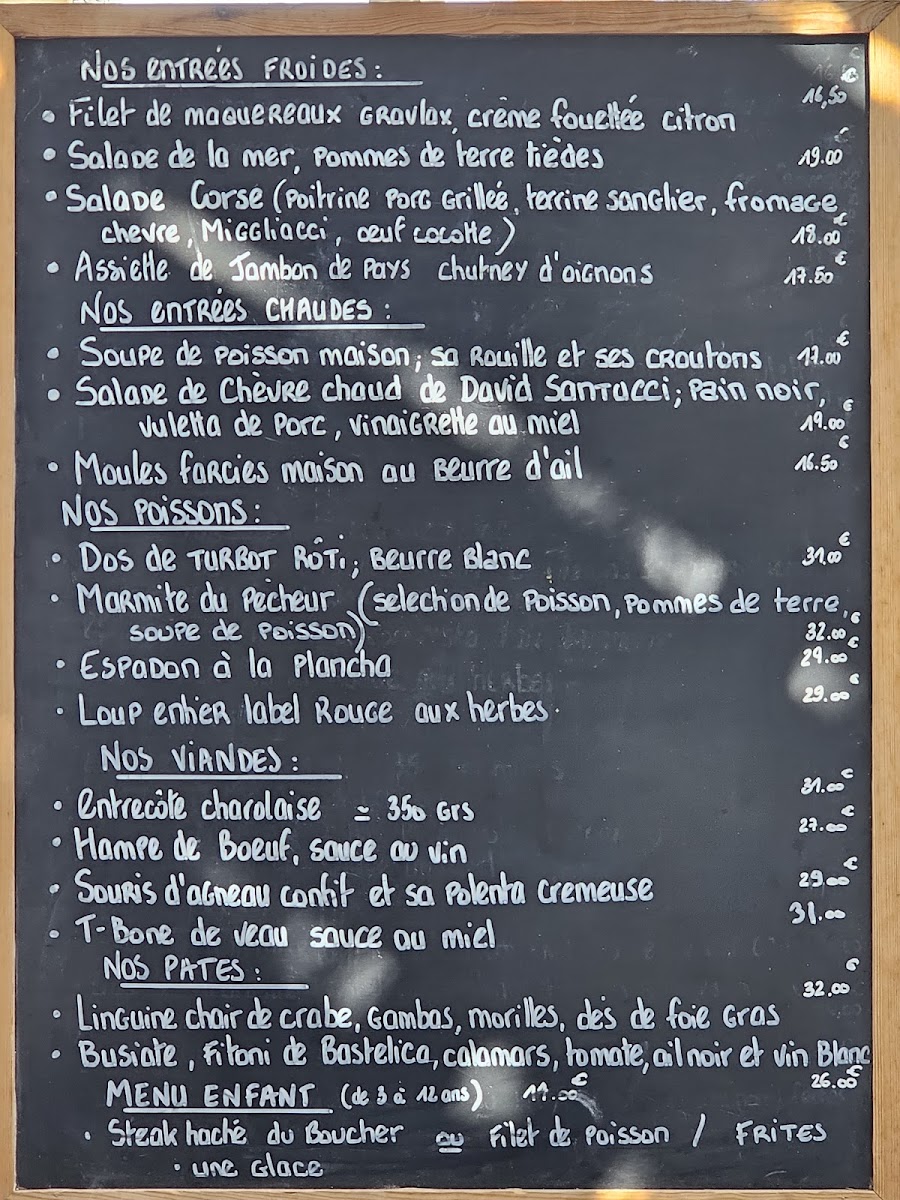 Nos entrées froides :
• Filet de maquereaux Gravlax, crème fouettée citron 16,50 €
• Salade de la mer, pommes de terre tièdes 19.00 €
• Salade Corse (poitrine porc grillée, terrine sanglier, fromage
chevre, Miggliacci, œuf cocotte) 18.00 €
• Assiette de Jambon de Pays chutney d'oignons 17.50 €
Nos entrées CHAUDES :
• Soupe de poisson maison ; sa Rouille et ses croutons 17.00 €
• Salade de Chèvre chaud de David Santucci ; Pain noir,
vuletta de Porc, vinaigrette au miel 19.00 €
• Moules farcies maison au Beurre d'ail 16.50 €
Nos Poissons :
• Dos de TURBOT Rôti ; Beurre Blanc 31.00 €
• Marmite du Pecheur (selection de Poisson, pommes de terre,
soupe de poisson) 32.00 €
• Espadon à la Plancha 29.00 €
• Loup entier label Rouge aux herbes. 29.00 €
Nos VIANDES :
• Entrecôte charolaise ≃ 350 Grs 31.00 €
• Hampe de Boeuf, sauce au vin 27.00 €
• Souris d'agneau confit et sa Polenta Cremeuse 29.00 €
• T-Bone de veau sauce au miel 31.00
Nos PATES :
• Linguine chair de crabe, Gambas, morilles, dés de foie Gras 32.00 €
• Busiate, Fitoni de Bastelica, calamars, tomate, ail noir et vin Blanc
26.00 €
MENU ENFANT (de 3 à 12 ans) 11.50 €
• Steak haché du Boucher ou Filet de Poisson / FRITES
• une Glace